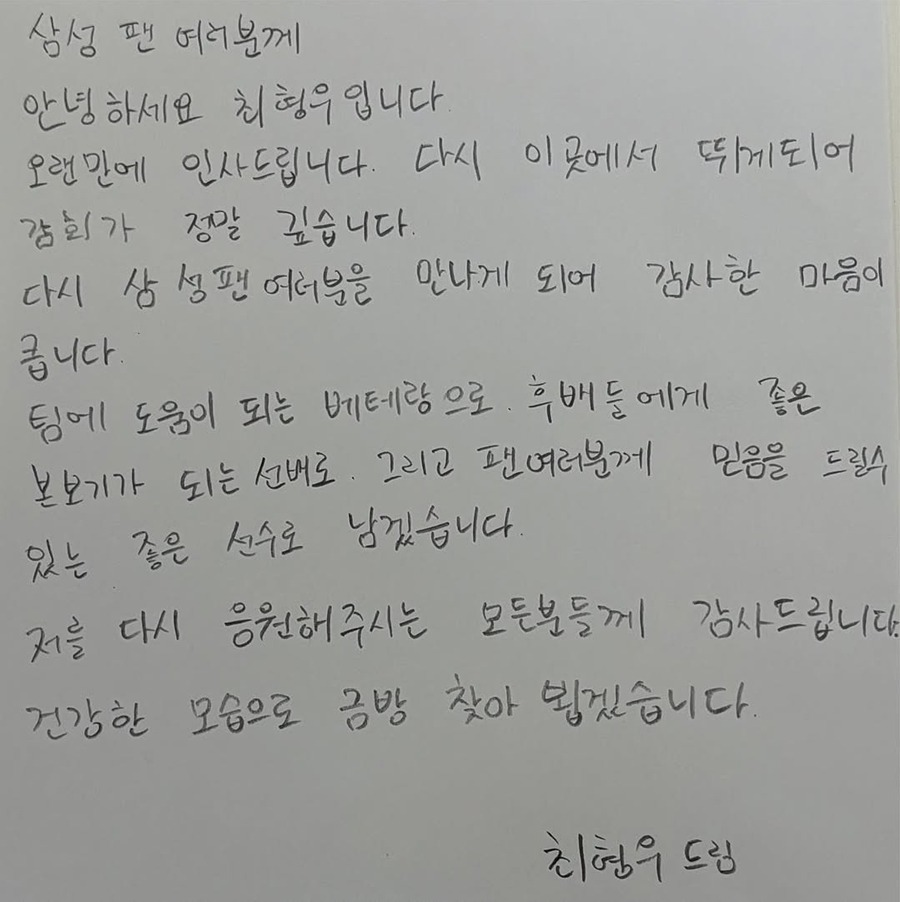 삼성 팬 여러분께
안녕하세요 최형우입니다.
오랜만에 인사드립니다. 다시 이곳에서 뛰게되어
감회가 정말 깊습니다.
다시 삼성팬여러분을 만나게 되어 감사한 마음이
큽니다.
팀에 도움이 되는 베테랑으로. 후배들에게 좋은
본보기가 되는선배로. 그리고 팬여러분께 믿음을 드릴수
있는 좋은 선수로 남겠습니다.
저를 다시 응원해주시는 모든분들께 감사드립니다.
건강한 모습으로 금방 찾아 뵙겠습니다.
최형우 드림